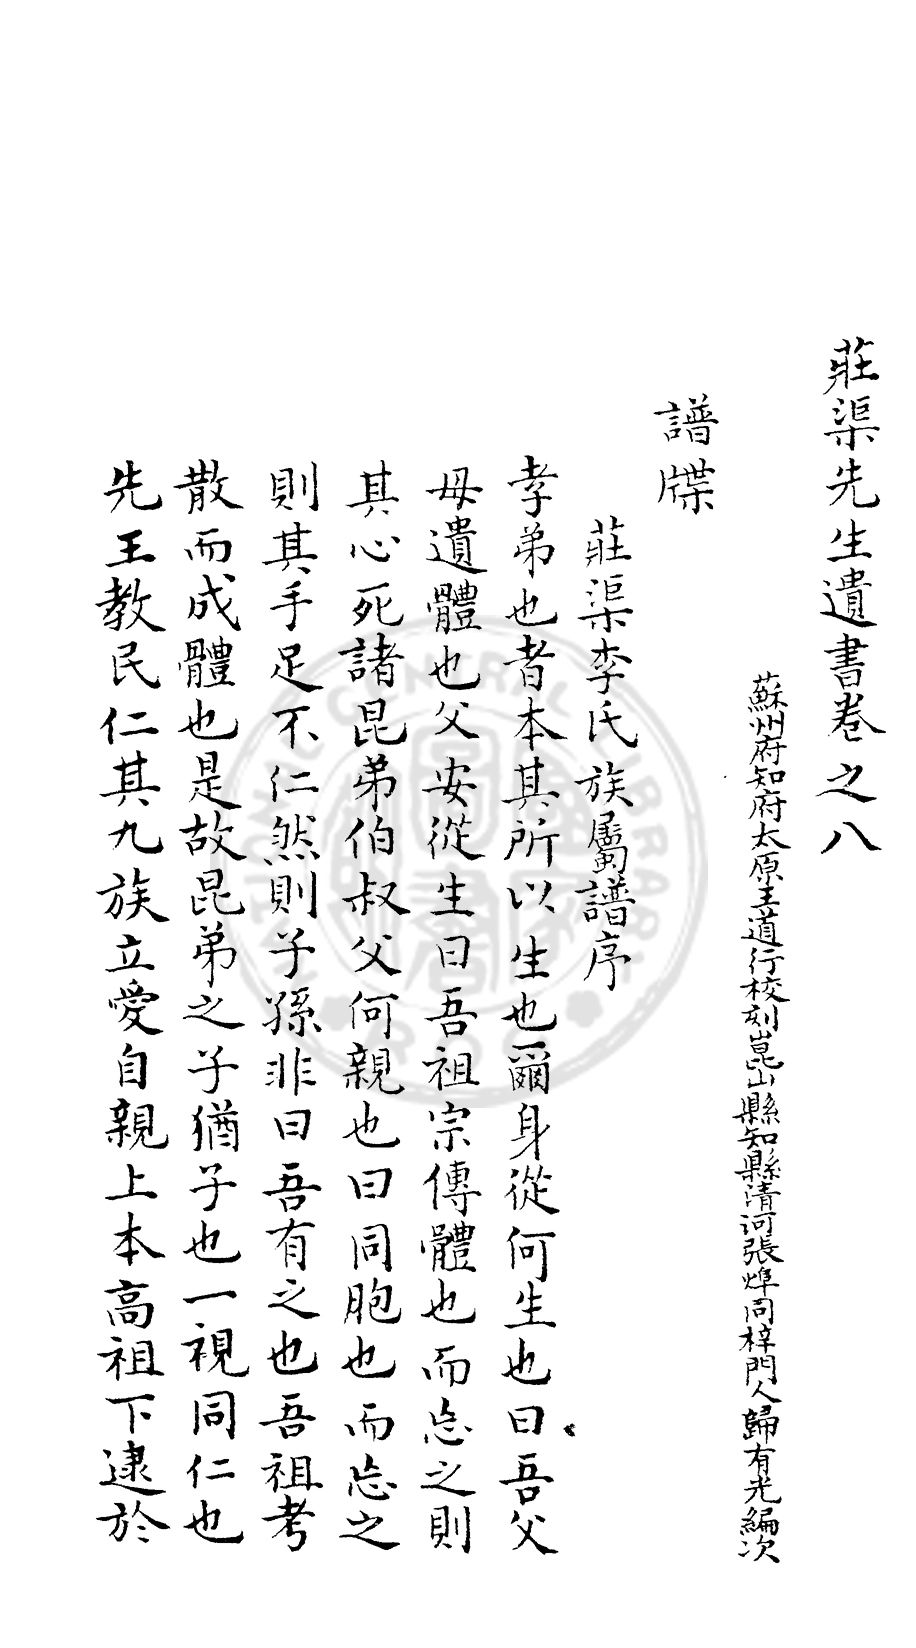 莊渠先生遺書卷之八
蘇州府知府太原王道行校刻崑山縣知縣清河張焊同梓門人歸有光編次
譜牒
莊渠李氏族屬譜序
孝弟也者本其所以生也爾身從何生也曰吾父
母遺體也父安從生曰吾祖宗傳體也而忘之則
其心死諸昆弟伯叔父何親也曰同胞也而忘之
則其手足不仁然則子孫非曰吾有之也吾祖考
散而成體也是故昆弟之子猶子也一視同仁也
先王教民仁其九族立愛自親上本高祖下逮於
NATIONAL CENTRAL LIBRARY
R.O.C